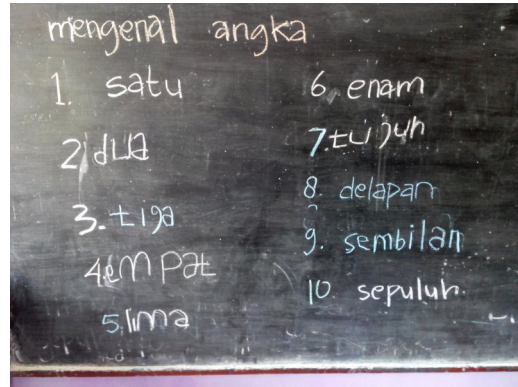 mengenal angka
1. satu
2 dua
3. tiga
4 empat
5 lima
6. enam
7. tujuh
8. delapan
9. sembilan
10. sepuluh.